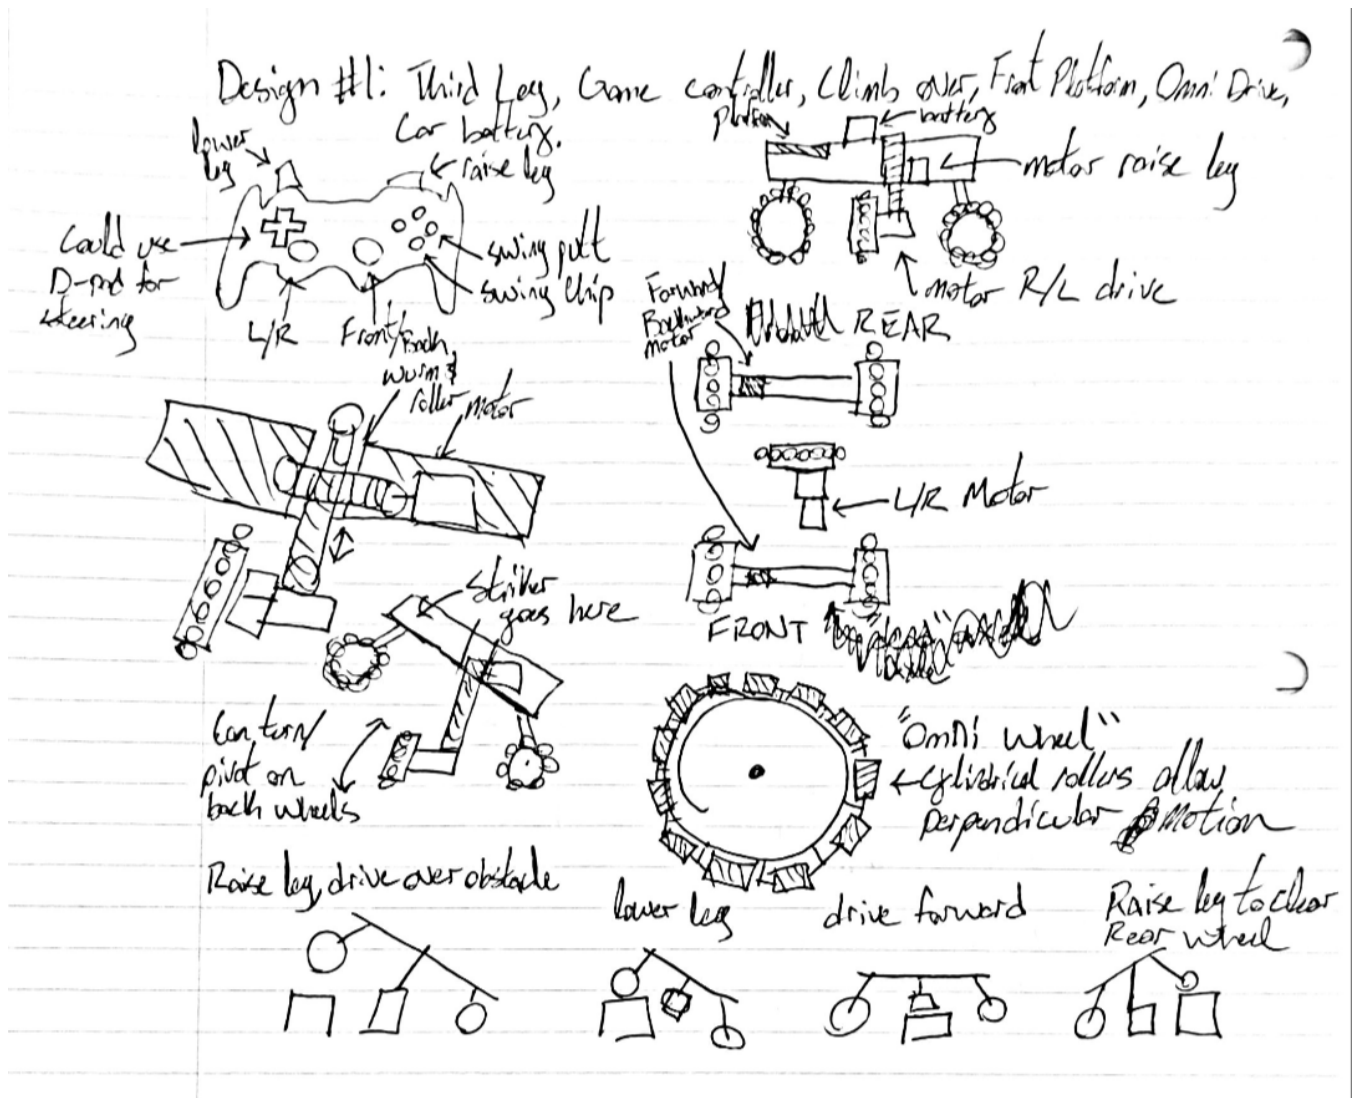 Design #1: Third Leg, Game controller, Climb over, Front Platform, Omni Drive,
Car battery.
lower
leg
raise leg
Could use
D-pad for
steering
swing putt
swing chip
L/R
Front/Back
platform
battery
motor raise leg
motor R/L drive
Forward/
Backward
motor
REAR
L/R Motor
FRONT
worm &
roller
motor
Striker
goes here
Can turn/
pivot on
back wheels
"Omni wheel"
cylindrical rollers allow
perpendicular motion
Raise leg, drive over obstacle
lower leg
drive forward
Raise leg to clear
Rear wheel